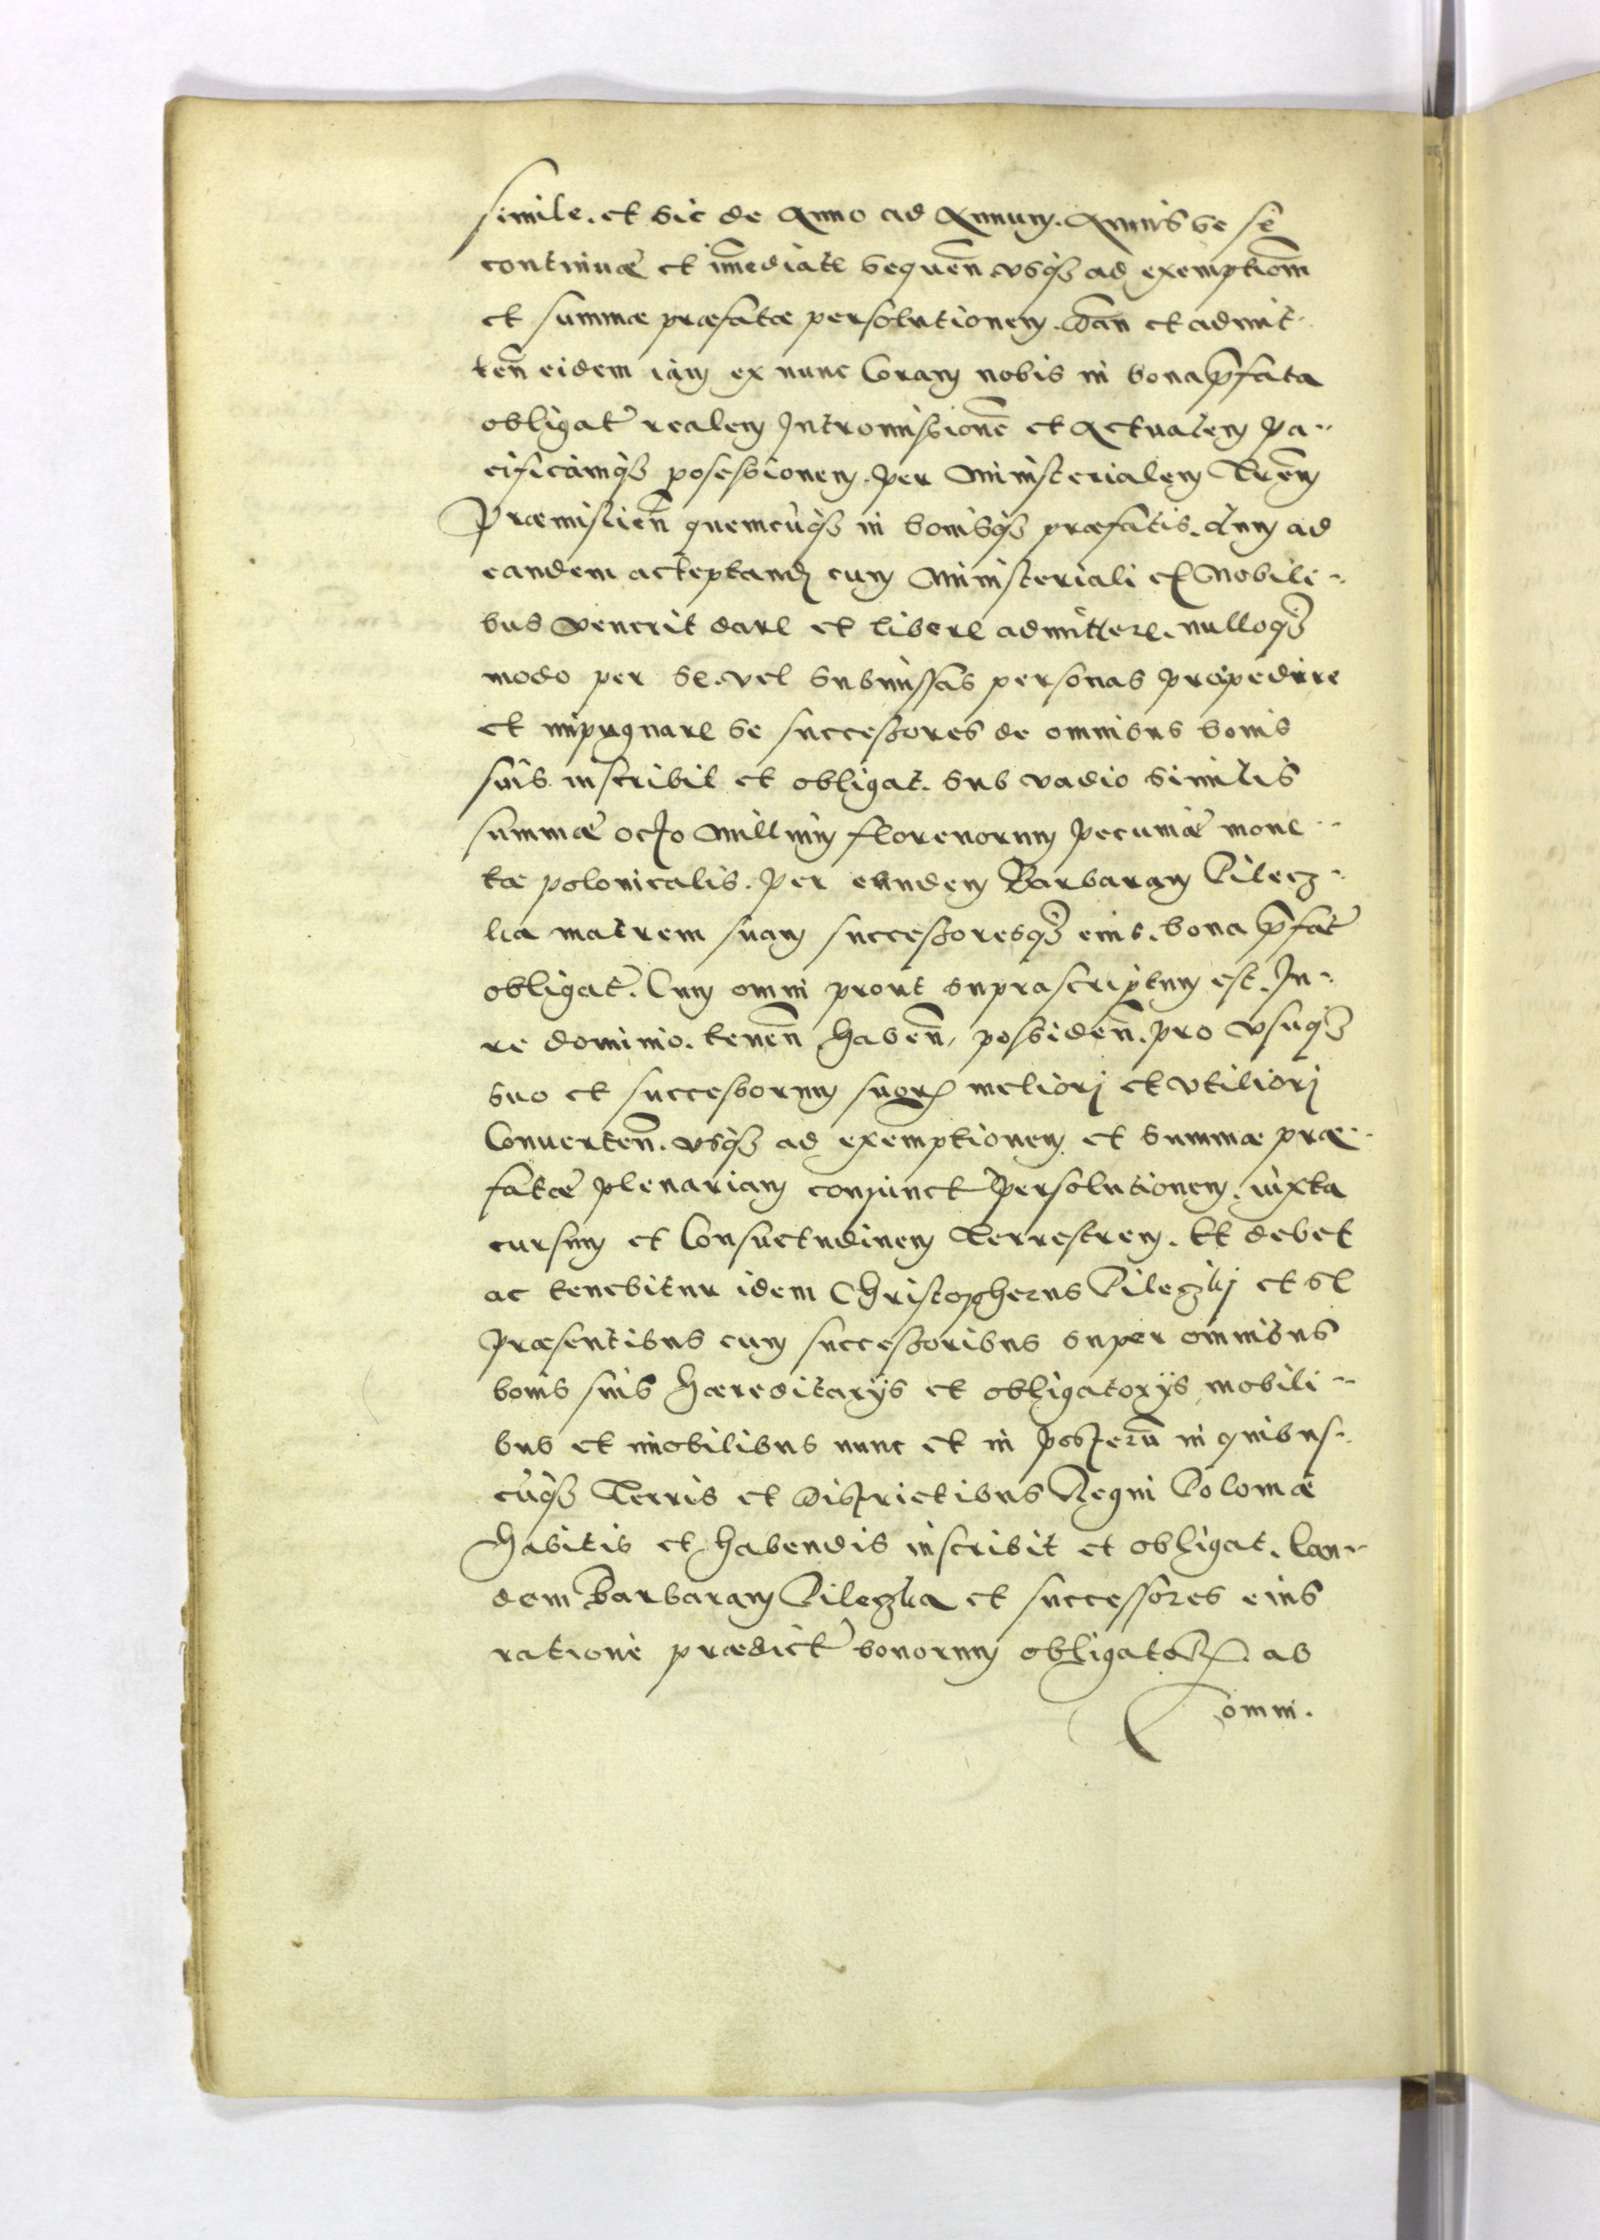 simile. et sic de Anno ad Annum. Annis se se
continuæ et im̄ediate sequen̄ usq₃ ad exemptiom̄
et summæ præfatæ persolutionem. Dan̄ et admit¨
ten̄ eidem iam ex nunc Coram nobis in bona p̄fata
obligat̉ realem Intromissione͂ et Actualem Pa¨
cificamq₃ posessionem. per Ministerialem Tren̄
Præmislien̄ quemcūq₃ in bonisq₃ præfatis. dum ad
eandem acceptand̨ cum Ministeriali et Nobili¨
bus venerit dare et libere admittere. nulloq₃
modo per se. vel submissas personas præpedire
et impugnare se successores de omnibus bonis
suis inscribit et obligat. sub vadio similis
summæ octo Millium florenorum Pecuniæ mone¨
tæ polonicalis. Per eandem Barbaram Pilecz¨
ka matrem suam successoresq₃ eius. bona p̄fat̉
obligat̉. Cum omni prout suprascriptum est. Ju¨
re dominio. tenen̄ haben̄, possiden̄. pro usuq₃
suo et successorum suoꝝ meliori et utiliori
Conuerten̄. usq₃ ad exemptionem et summæ præ¨
fatæ plenariam conjunct̉ Persolutionem. iuxta
cursum et Consuetudinem Terrestrem. Et debet
ac tenebitur idem Christopherus Pileczkj et se
Præsentibus cum successoribus super omnibus
bonis suis Hæreditarijs et obligatorijs mobili¨
bus et imobilibus nunc et in Posterū in quibus¨
cūq₃ Terris et Districtibus Regni Poloniæ
Habitis et habendis inscribit et obligat. Ean¨
dem Barbaram Pileczka et successores eius
ratione prædict̉ bonorum obligatoꝝ. ab
omni.